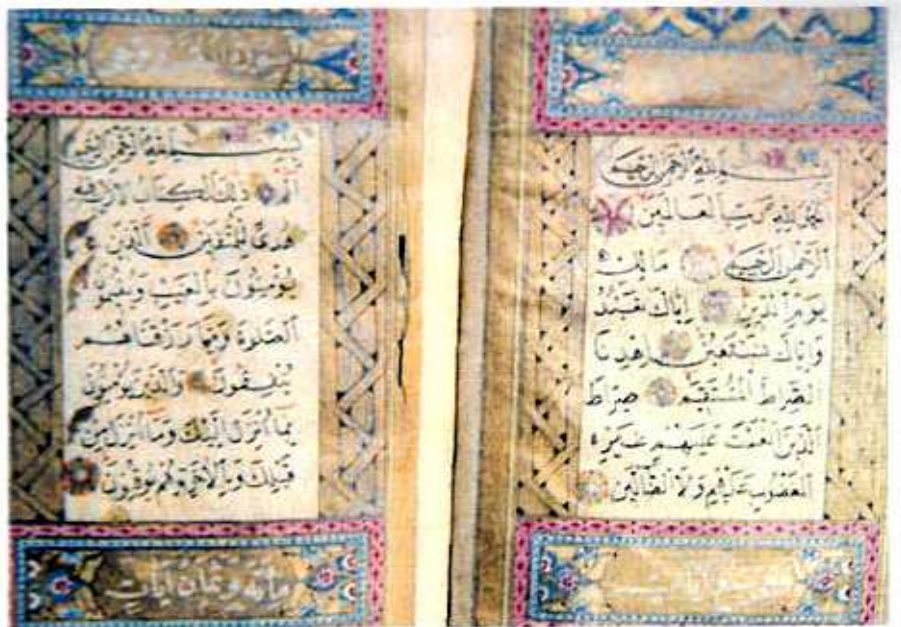 بِسْمِ اللهِ الرَّحْمٰنِ الرَّحِيْمِ
اَلْحَمْدُ لِلّٰهِ رَبِّ الْعَالَمِيْنَ
اَلرَّحْمٰنِ الرَّحِيْمِ مَالِكِ
يَوْمِ الدِّيْنِ اِيَّاكَ نَعْبُدُ
وَاِيَّاكَ نَسْتَعِيْنُ اِهْدِنَا
الصِّرَاطَ الْمُسْتَقِيْمَ صِرَاطَ
الَّذِيْنَ اَنْعَمْتَ عَلَيْهِمْ غَيْرِ
الْمَغْضُوْبِ عَلَيْهِمْ وَلَا الضَّالِّيْنَ
آيات
سورة
بِسْمِ اللهِ الرَّحْمٰنِ الرَّحِيْمِ
الم ذٰلِكَ الْكِتَابُ لَا رَيْبَ فِيْهِ
هُدًى لِلْمُتَّقِيْنَ اَلَّذِيْنَ
يُؤْمِنُوْنَ بِالْغَيْبِ وَيُقِيْمُوْنَ
الصَّلٰوةَ وَمِمَّا رَزَقْنَاهُمْ
يُنْفِقُوْنَ وَالَّذِيْنَ يُؤْمِنُوْنَ
بِمَا اُنْزِلَ اِلَيْكَ وَمَا اُنْزِلَ مِنْ
قَبْلِكَ وَبِالْاٰخِرَةِ هُمْ يُوْقِنُوْنَ
مائة وثمان آيات